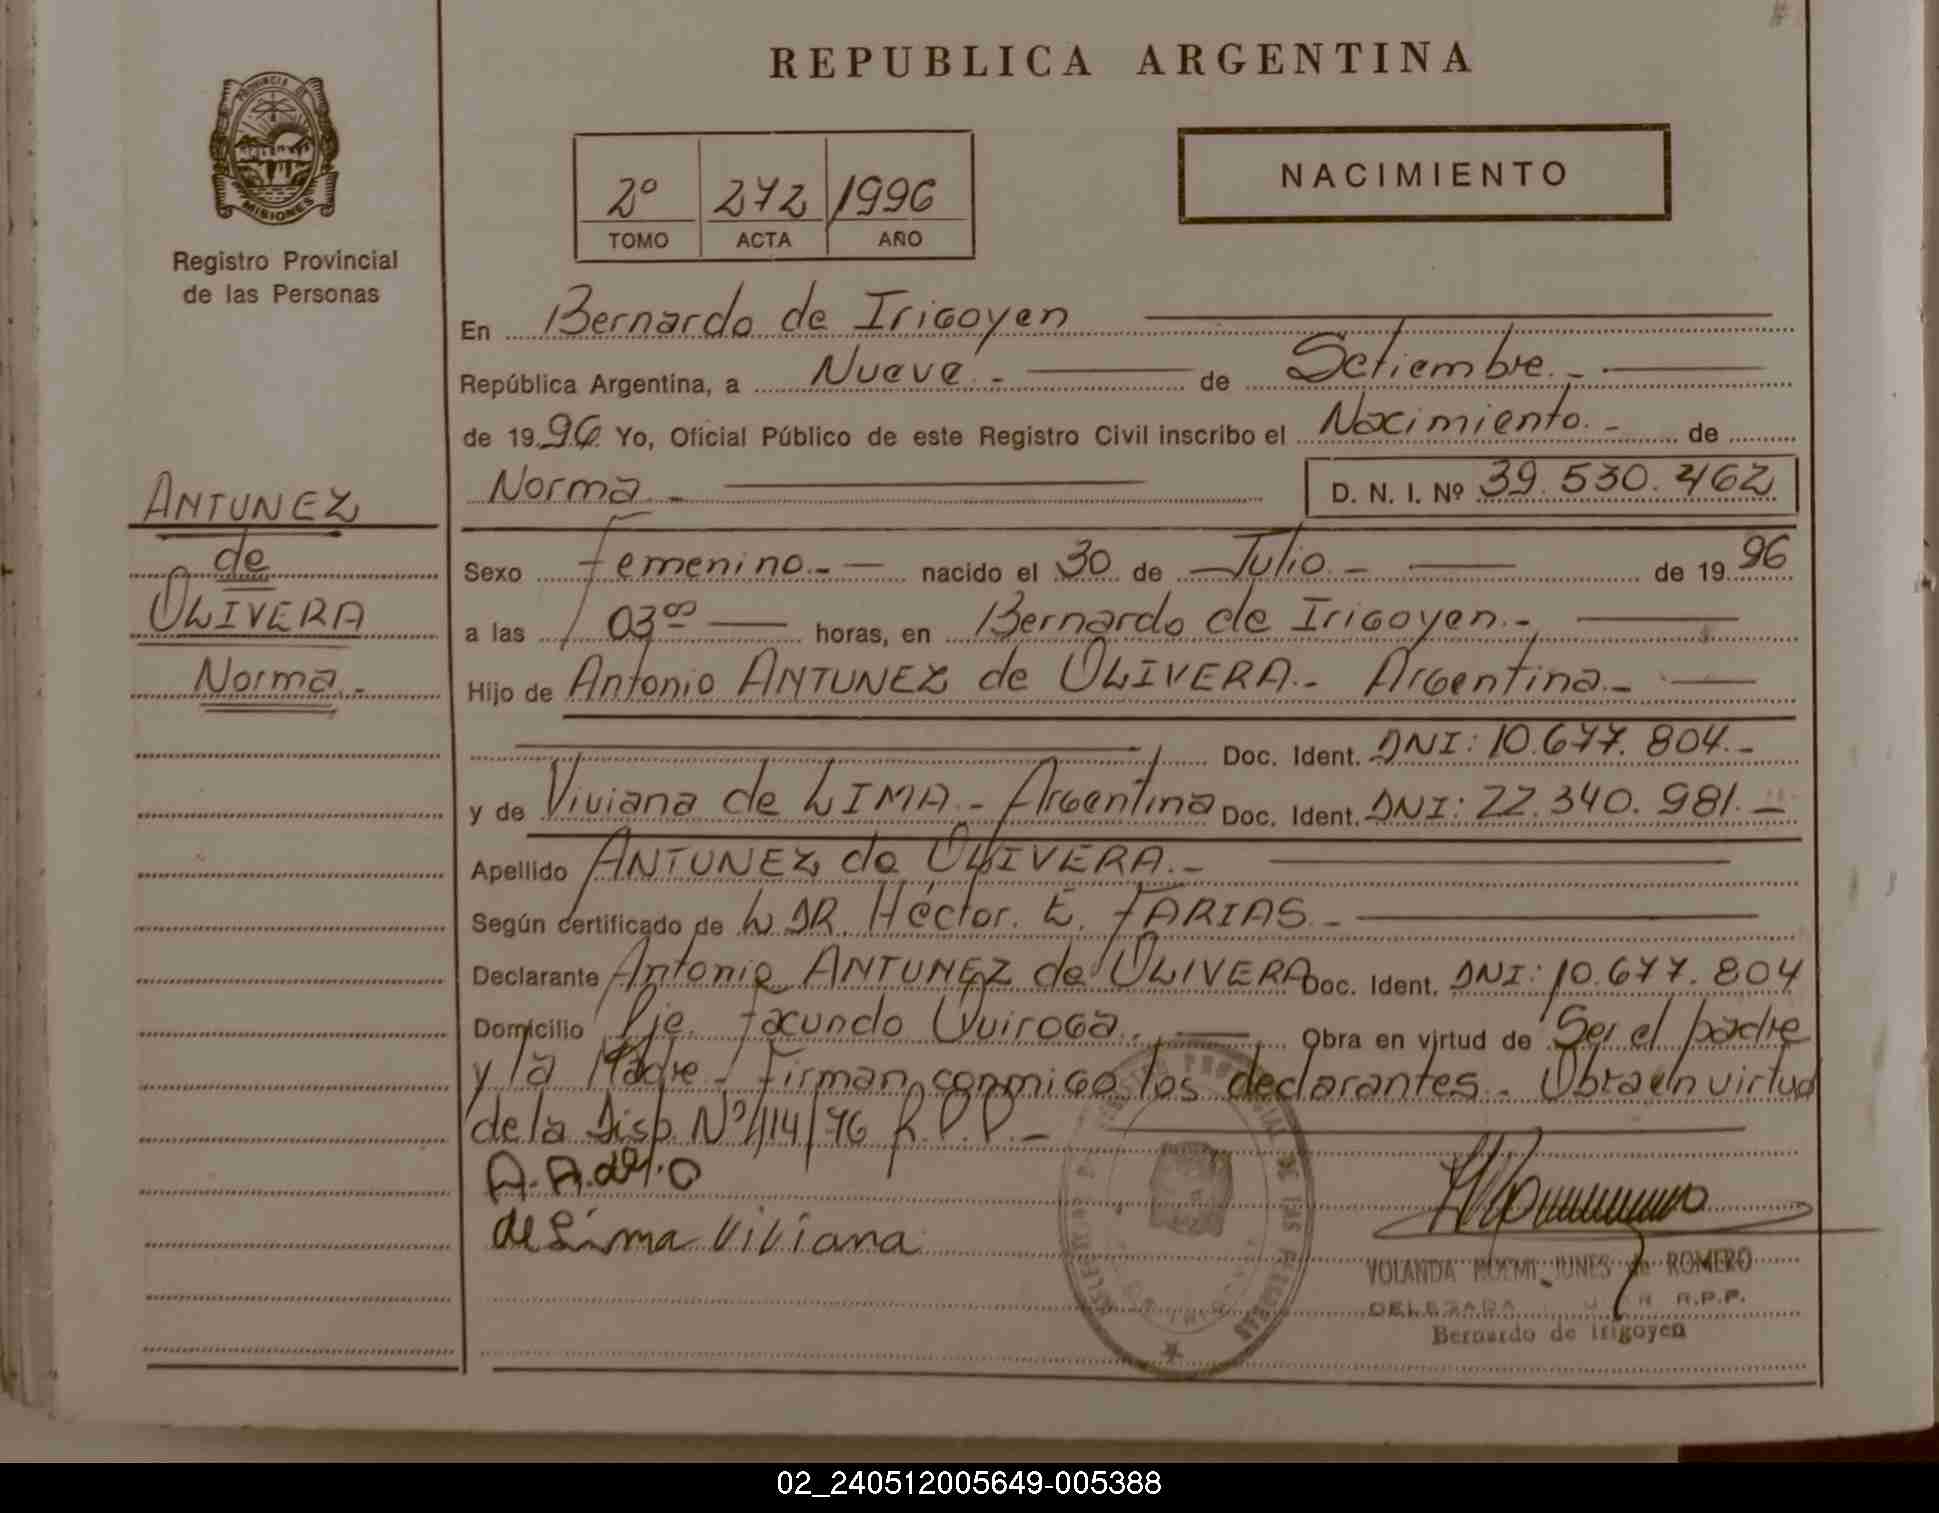 REPUBLICA ARGENTINA
PROVINCIA DE
MISIONES
Registro Provincial
de las Personas
2º 272 1996
TOMO ACTA AÑO
NACIMIENTO
En Bernardo de Irigoyen
República Argentina, a Nueve.- de Setiembre.-
de 1996. Yo, Oficial Público de este Registro Civil inscribo el Nacimiento.- de
Norma.- D. N. I. Nº 39.530.462
ANTUNEZ
de
OLIVERA
Norma.-
Sexo femenino.- nacido el 30 de Julio.- de 1996
a las 03⁰⁰ horas, en Bernardo de Irigoyen.-
Hijo de Antonio ANTUNEZ de OLIVERA.- Argentina.-
Doc. Ident. DNI: 10.677.804.-
y de Viviana de LIMA.- Argentina Doc. Ident. DNI: 22.340.981.-
Apellido ANTUNEZ de OLIVERA.-
Según certificado de L DR. Héctor. E. FARIAS.-
Declarante Antonio ANTUNEZ de OLIVERA Doc. Ident. DNI: 10.677.804
Domicilio Pje. Facundo Quiroga.- Obra en virtud de Ser el padre
y la Madre.- Firman conmigo los declarantes.- Obra en virtud
de la Disp. Nº 114/76 R.P.P.-
de Lima Viviana
YOLANDA NOEMI JUNES de ROMERO
DELEGADA R.P.P.
Bernardo de Irigoyen
02_240512005649-005388